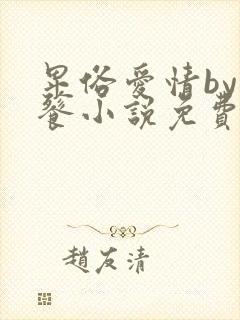 畢俗愛情by
餮小說免費
趙友清